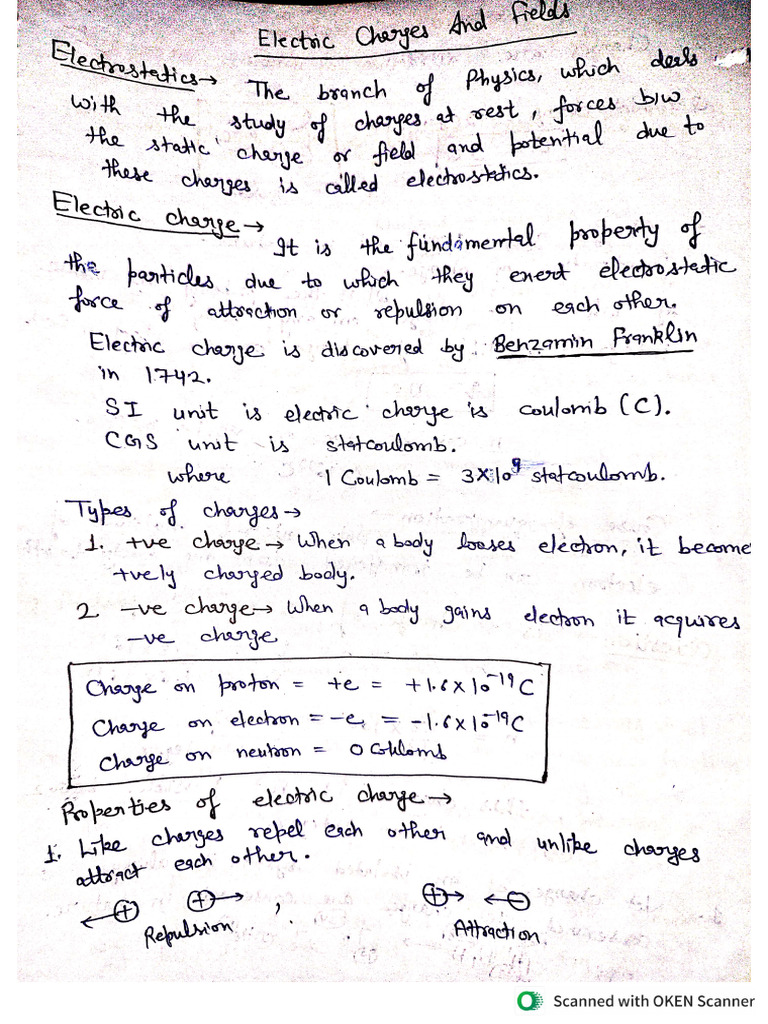 Electric Charges And Fields
Electrostatics → The branch of Physics, which deels
with the study of charges at rest, forces b/w
the static charge or field and potential due to
these charges is called electrostetics.
Electric charge →
It is the fundamental property of
the particles due to which they enert electrostatic
force of attraction or repulsion on each other.
Electric charge is discovered by Benzamin Franklin
in 1742.
SI unit is electric charge is coulomb (C).
CGS unit is statcoulomb.
where 1 Coulomb = 3×10⁹ statcoulomb.
Types of charges →
1. +ve charge → When a body looses electron, it become
+vely charged body.
2 -ve charge → When a body gains electron it acquires
-ve charge
Charge on proton = +e = +1.6×10⁻¹⁹C
Charge on electron = -e = -1.6×10⁻¹⁹C
Charge on neutron = 0 Coulomb
Properties of electric charge →
1. Like charges repel each other and unlike charges
attract each other.
+ + , + -
Repulsion Attraction
Scanned with OKEN Scanner